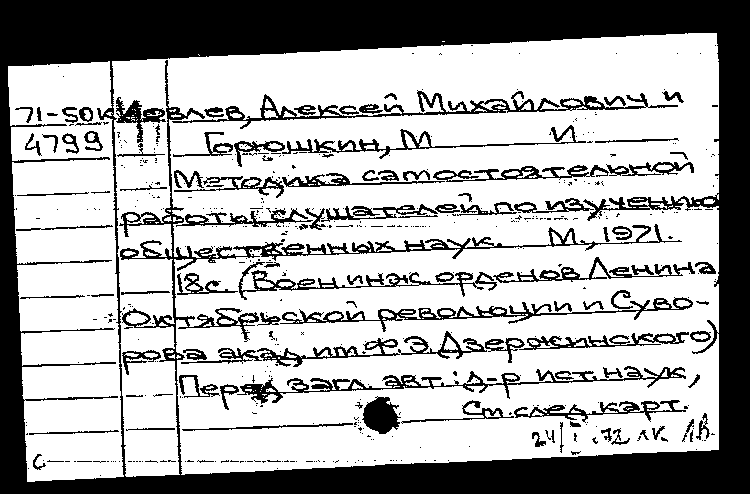 71-50к Иовлев, Алексей Михайлович и
4799 Горюшкин, М И
Методика самостоятельной
работы слушателей по изучению
общественных наук. М., 1971.
18с. (Воен. инж. орденов Ленина
Октябрьской революции и Суво-
рова акад. им. Ф.Э. Дзержинского)
Перед загл. авт.: д-р ист. наук,
См. след. карт.
24/I.72 лк. Л.В.
с